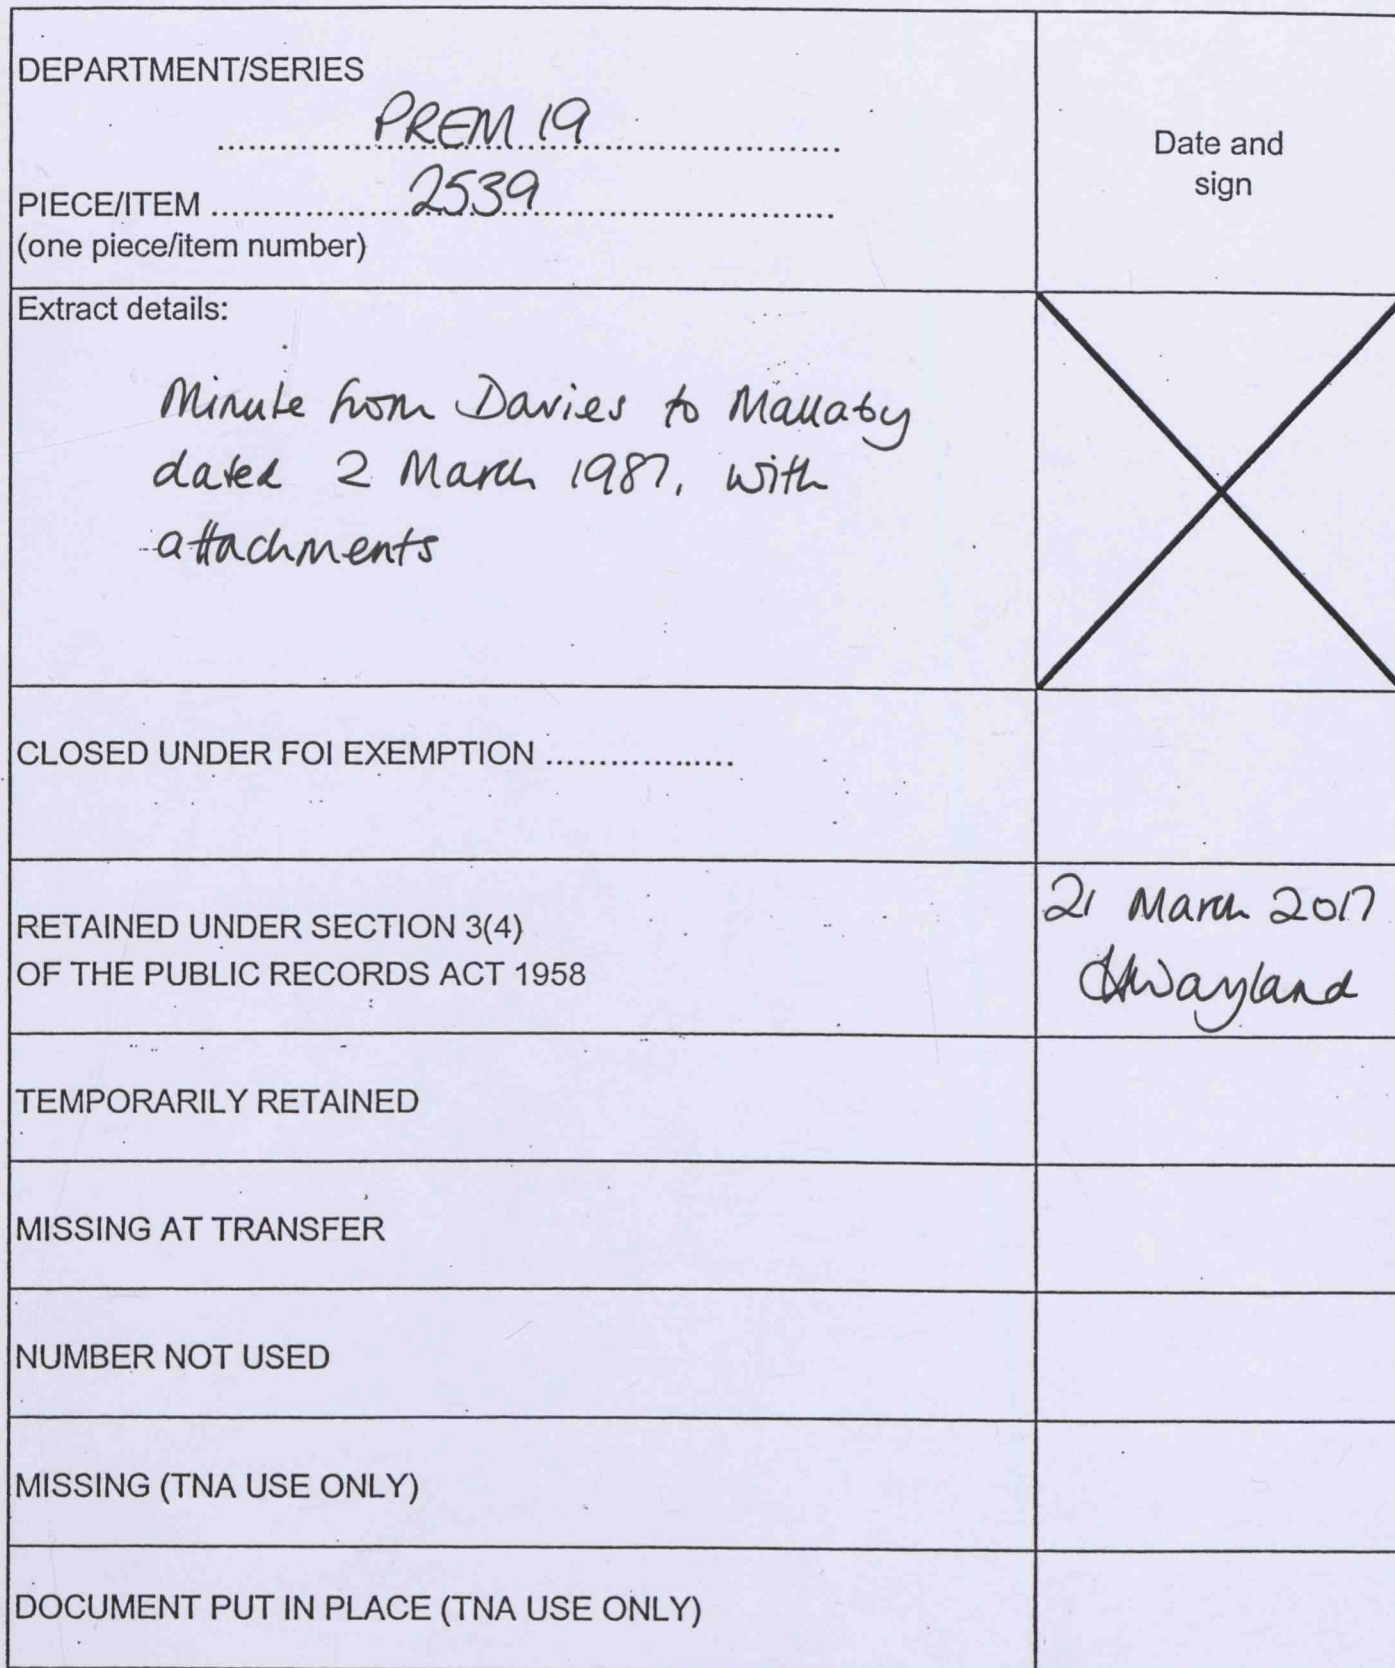 DEPARTMENT/SERIES
PREM 19
PIECE/ITEM 2539
(one piece/item number)
Date and
sign
Extract details:
Minute from Davies to Mallaby
dated 2 March 1987, with
attachments
CLOSED UNDER FOI EXEMPTION
RETAINED UNDER SECTION 3(4)
OF THE PUBLIC RECORDS ACT 1958
21 March 2017
Wayland
TEMPORARILY RETAINED
MISSING AT TRANSFER
NUMBER NOT USED
MISSING (TNA USE ONLY)
DOCUMENT PUT IN PLACE (TNA USE ONLY)